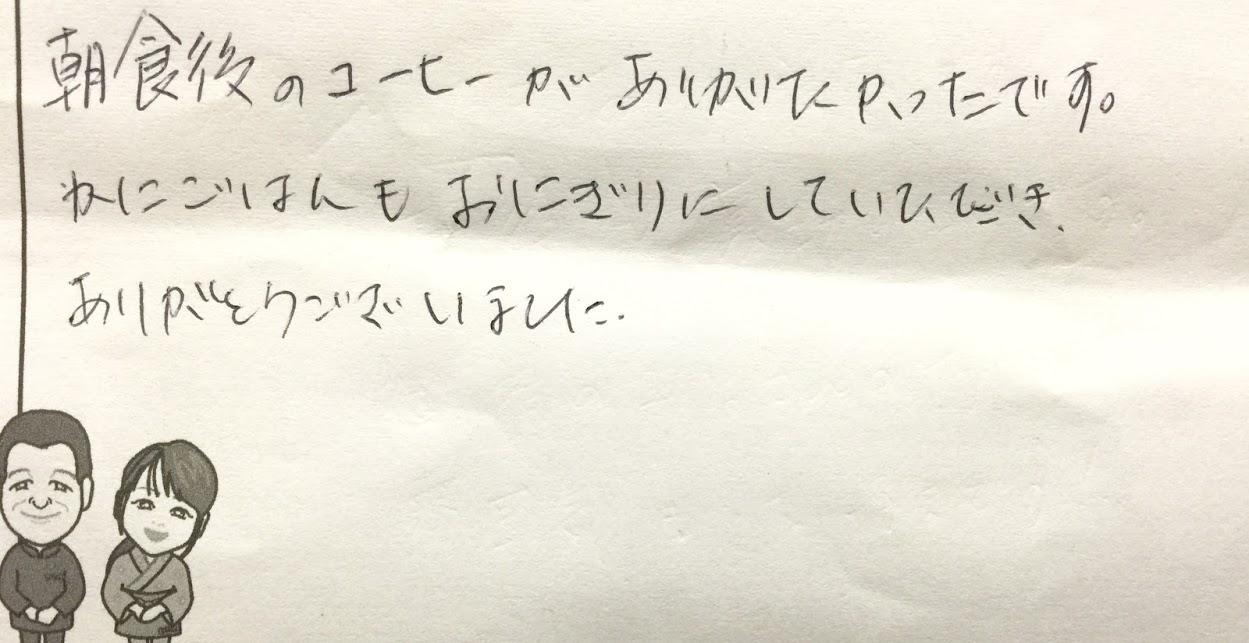 朝食後のコーヒーがありがたかったです。
かにごはんもおにぎりにしていただき、
ありがとうございました。